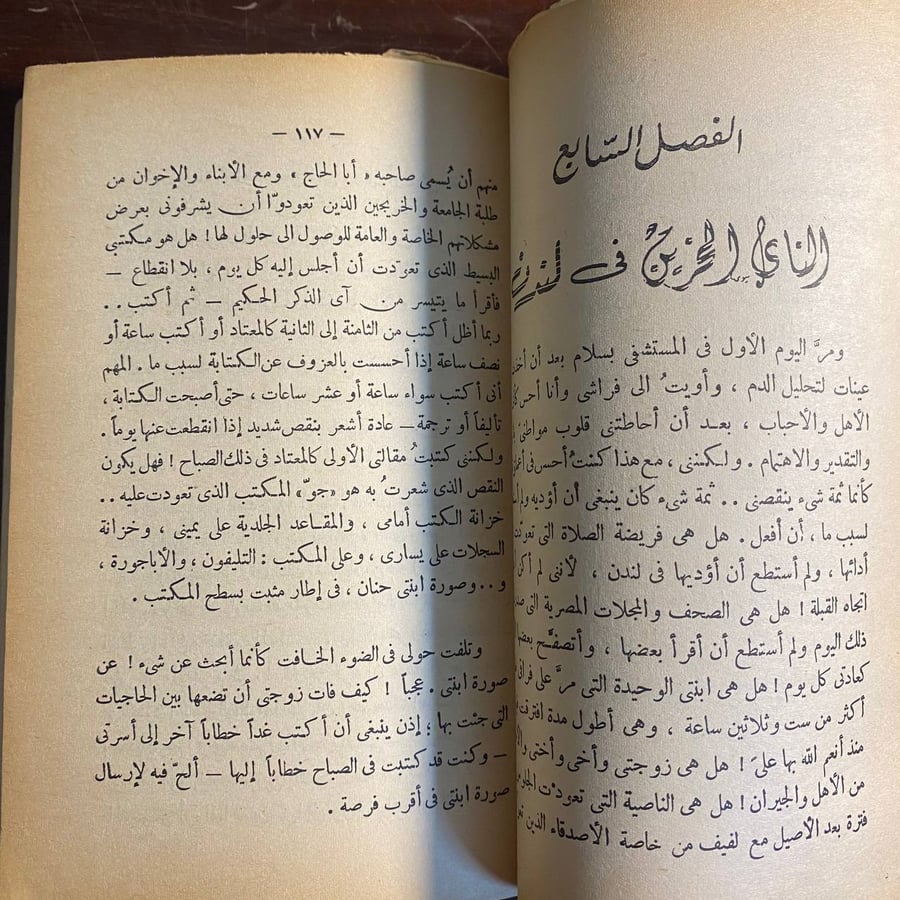 الفصل السابع
الناي الحزين فى لندن
ومرَّ اليوم الأول فى المستشفى بسلام بعد أن
عينات لتحليل الدم ، وأويتُ الى فراشى وأنا أحس
الأهل والأحباب ، بعد أن أحاطتنى قلوب مواطنى
والتقدير والاهتمام . ولكننى ، مع هذا كنتُ أحس فى
كأنما ثمة شىء ينقصنى .. ثمة شىء كان ينبغى أن أؤديه ولم
لسبب ما ، أن أفعل . هل هى فريضة الصلاة التى
أدائها ، ولم أستطع أن أؤديها فى لندن ، لأننى لم أكن
اتجاه القبلة ! هل هى الصحف والمجلات المصرية التى
ذلك اليوم ولم أستطع أن أقرأ بعضها ، وأتصفَّح بعضها
كعادتى كل يوم ! هل هى ابنتى الوحيدة التى مرَّ على
أكثر من ست وثلاثين ساعة ، وهى أطول مدة
منذ أنعم الله بها علىَّ ! هل هى زوجتى وأخى وأختى
من الأهل والجيران ! هل هى الناصية التى تعودت
فترة بعد الأصيل مع لفيف من خاصة الأصدقاء الذين
— ١١٧ —
منهم أن يُسمى صاحبه « أبا الحاج » ومع الأبناء والإخوان من
طلبة الجامعة والخريجين الذين تعودوا أن يشرفونى بعرض
مشكلاتهم الخاصة والعامة للوصول الى حلول لها ! هل هو مكتبى
البسيط الذى تعودت أن أجلس إليه كل يوم ، بلا انقطاع —
فأقرأ ما يتيسر من آى الذكر الحكيم — ثم أكتب ..
ربما أظل أكتب من الثامنة إلى الثانية كالمعتاد أو أكتب ساعة أو
نصف ساعة إذا أحسست بالعزوف عن الكتابة لسبب ما . المهم
أنى أكتب سواء ساعة أو عشر ساعات ، حتى أصبحت الكتابة ،
تأليفاً أو ترجمة — عادة أشعر بنقص شديد إذا انقطعت عنها يوماً .
ولكننى كتبتُ مقالتى الأولى كالمعتاد فى ذلك الصباح ! فهل يكون
النقص الذى شعرتُ به هو « جو » المكتب الذى تعودت عليه ..
خزانة الكتب أمامى ، والمقاعد الجلدية على يمينى ، وخزانة
السجلات على يسارى ، وعلى المكتب : التليفون ، والأباجورة ،
و .. وصورة ابنتى حنان ، فى إطار مثبت بسطح المكتب .
وتلفت حولى فى الضوء الخافت كأنما أبحث عن شىء ! عن
صورة ابنتى . عجباً ! كيف فات زوجتى أن تضعها بين الحاجيات
التى جئت بها ؛ إذن ينبغى أن أكتب غداً خطاباً آخر إلى أسرتى
— وكنت قد كتبت فى الصباح خطاباً إليها — ألحّ فيه لإرسال
صورة ابنتى فى أقرب فرصة .